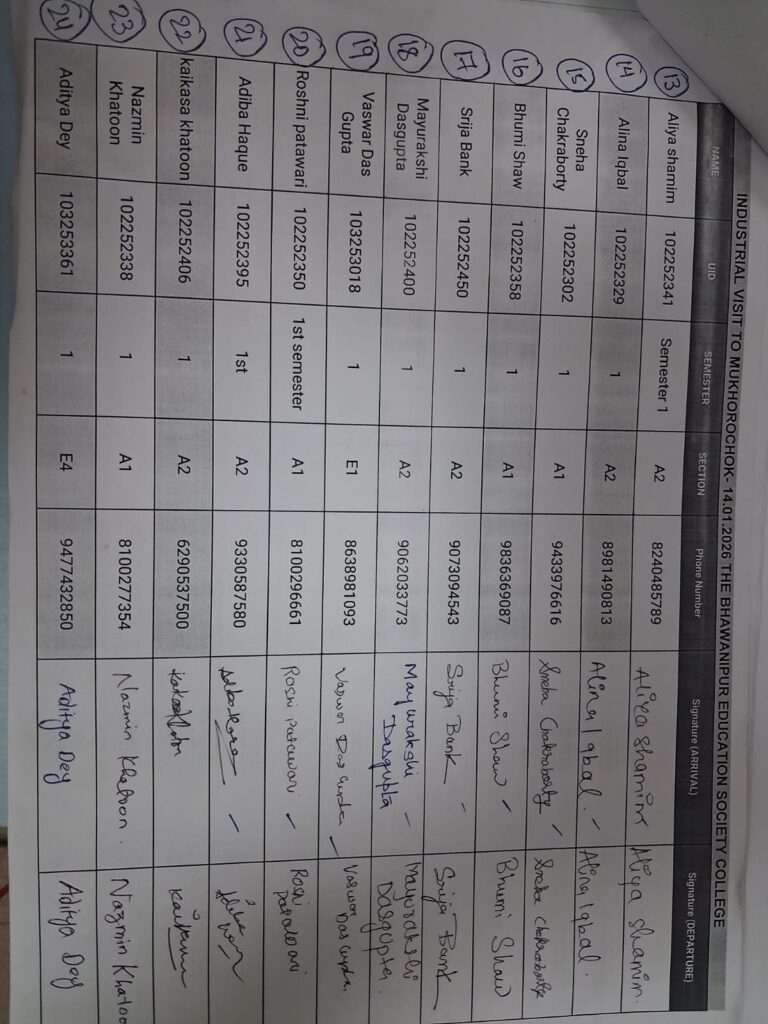 INDUSTRIAL VISIT TO MUKHOROCHOK- 14.01.2026 THE BHAWANIPUR EDUCATION SOCIETY COLLEGE
NAME UID SEMESTER SECTION Phone Number Signature (ARRIVAL) Signature (DEPARTURE)
13 Aliya shamim 102252341 Semester 1 A2 8240485789 Aliya Shamim Aliya Shamim.
14 Alina Iqbal 102252329 1 A2 8981490813 Alina Iqbal. Alina Iqbal.
15 Sneha Chakraborty 102252302 1 A1 9433976616 Sneha Chakraborty Sneha Chakraborty
16 Bhumi Shaw 102252358 1 A1 9836369087 Bhumi Shaw Bhumi Shaw
17 Srija Bank 102252450 1 A2 9073094543 Srija Bank Srija Bank
18 Mayurakshi Dasgupta 102252400 1 A2 9062033773 Mayurakshi Dasgupta Mayurakshi Dasgupta.
19 Vaswar Das Gupta 103253018 1 E1 8638981093 Vaswar Das Gupta Vaswar Das Gupta.
20 Roshni patawari 102252350 1st semester A1 8100296661 Roshi Patawari Roshi Patawari
21 Adiba Haque 102252395 1st A2 9330587580
22 kaikasa khatoon 102252406 1 A2 6290537500
23 Nazmin Khatoon 102252338 1 A1 8100277354 Nazmin Khatoon. Nazmin Khatoo
24 Aditya Dey 103253361 1 E4 9477432850 Aditya Dey Aditya Dey